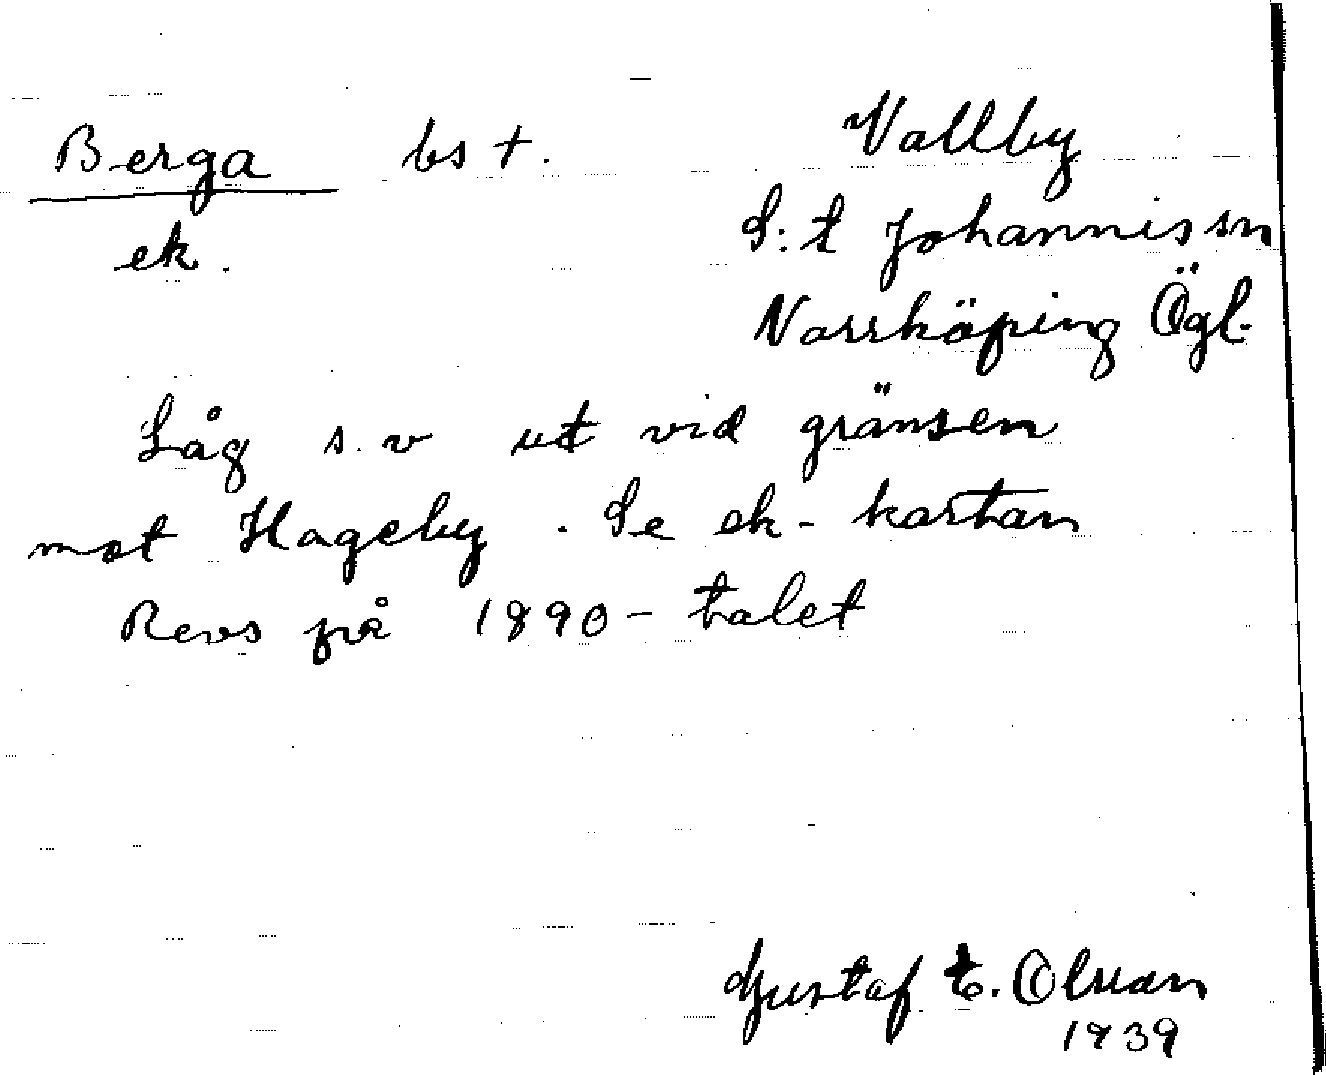 Berga bs †. Vallby
ek. S:t Johannis sn
Norrköping Ögl.
Låg s.v ut vid gränsen
mot Hageby. Se ek-kartan
Revs på 1890-talet
Gustaf E. Olsson
1939